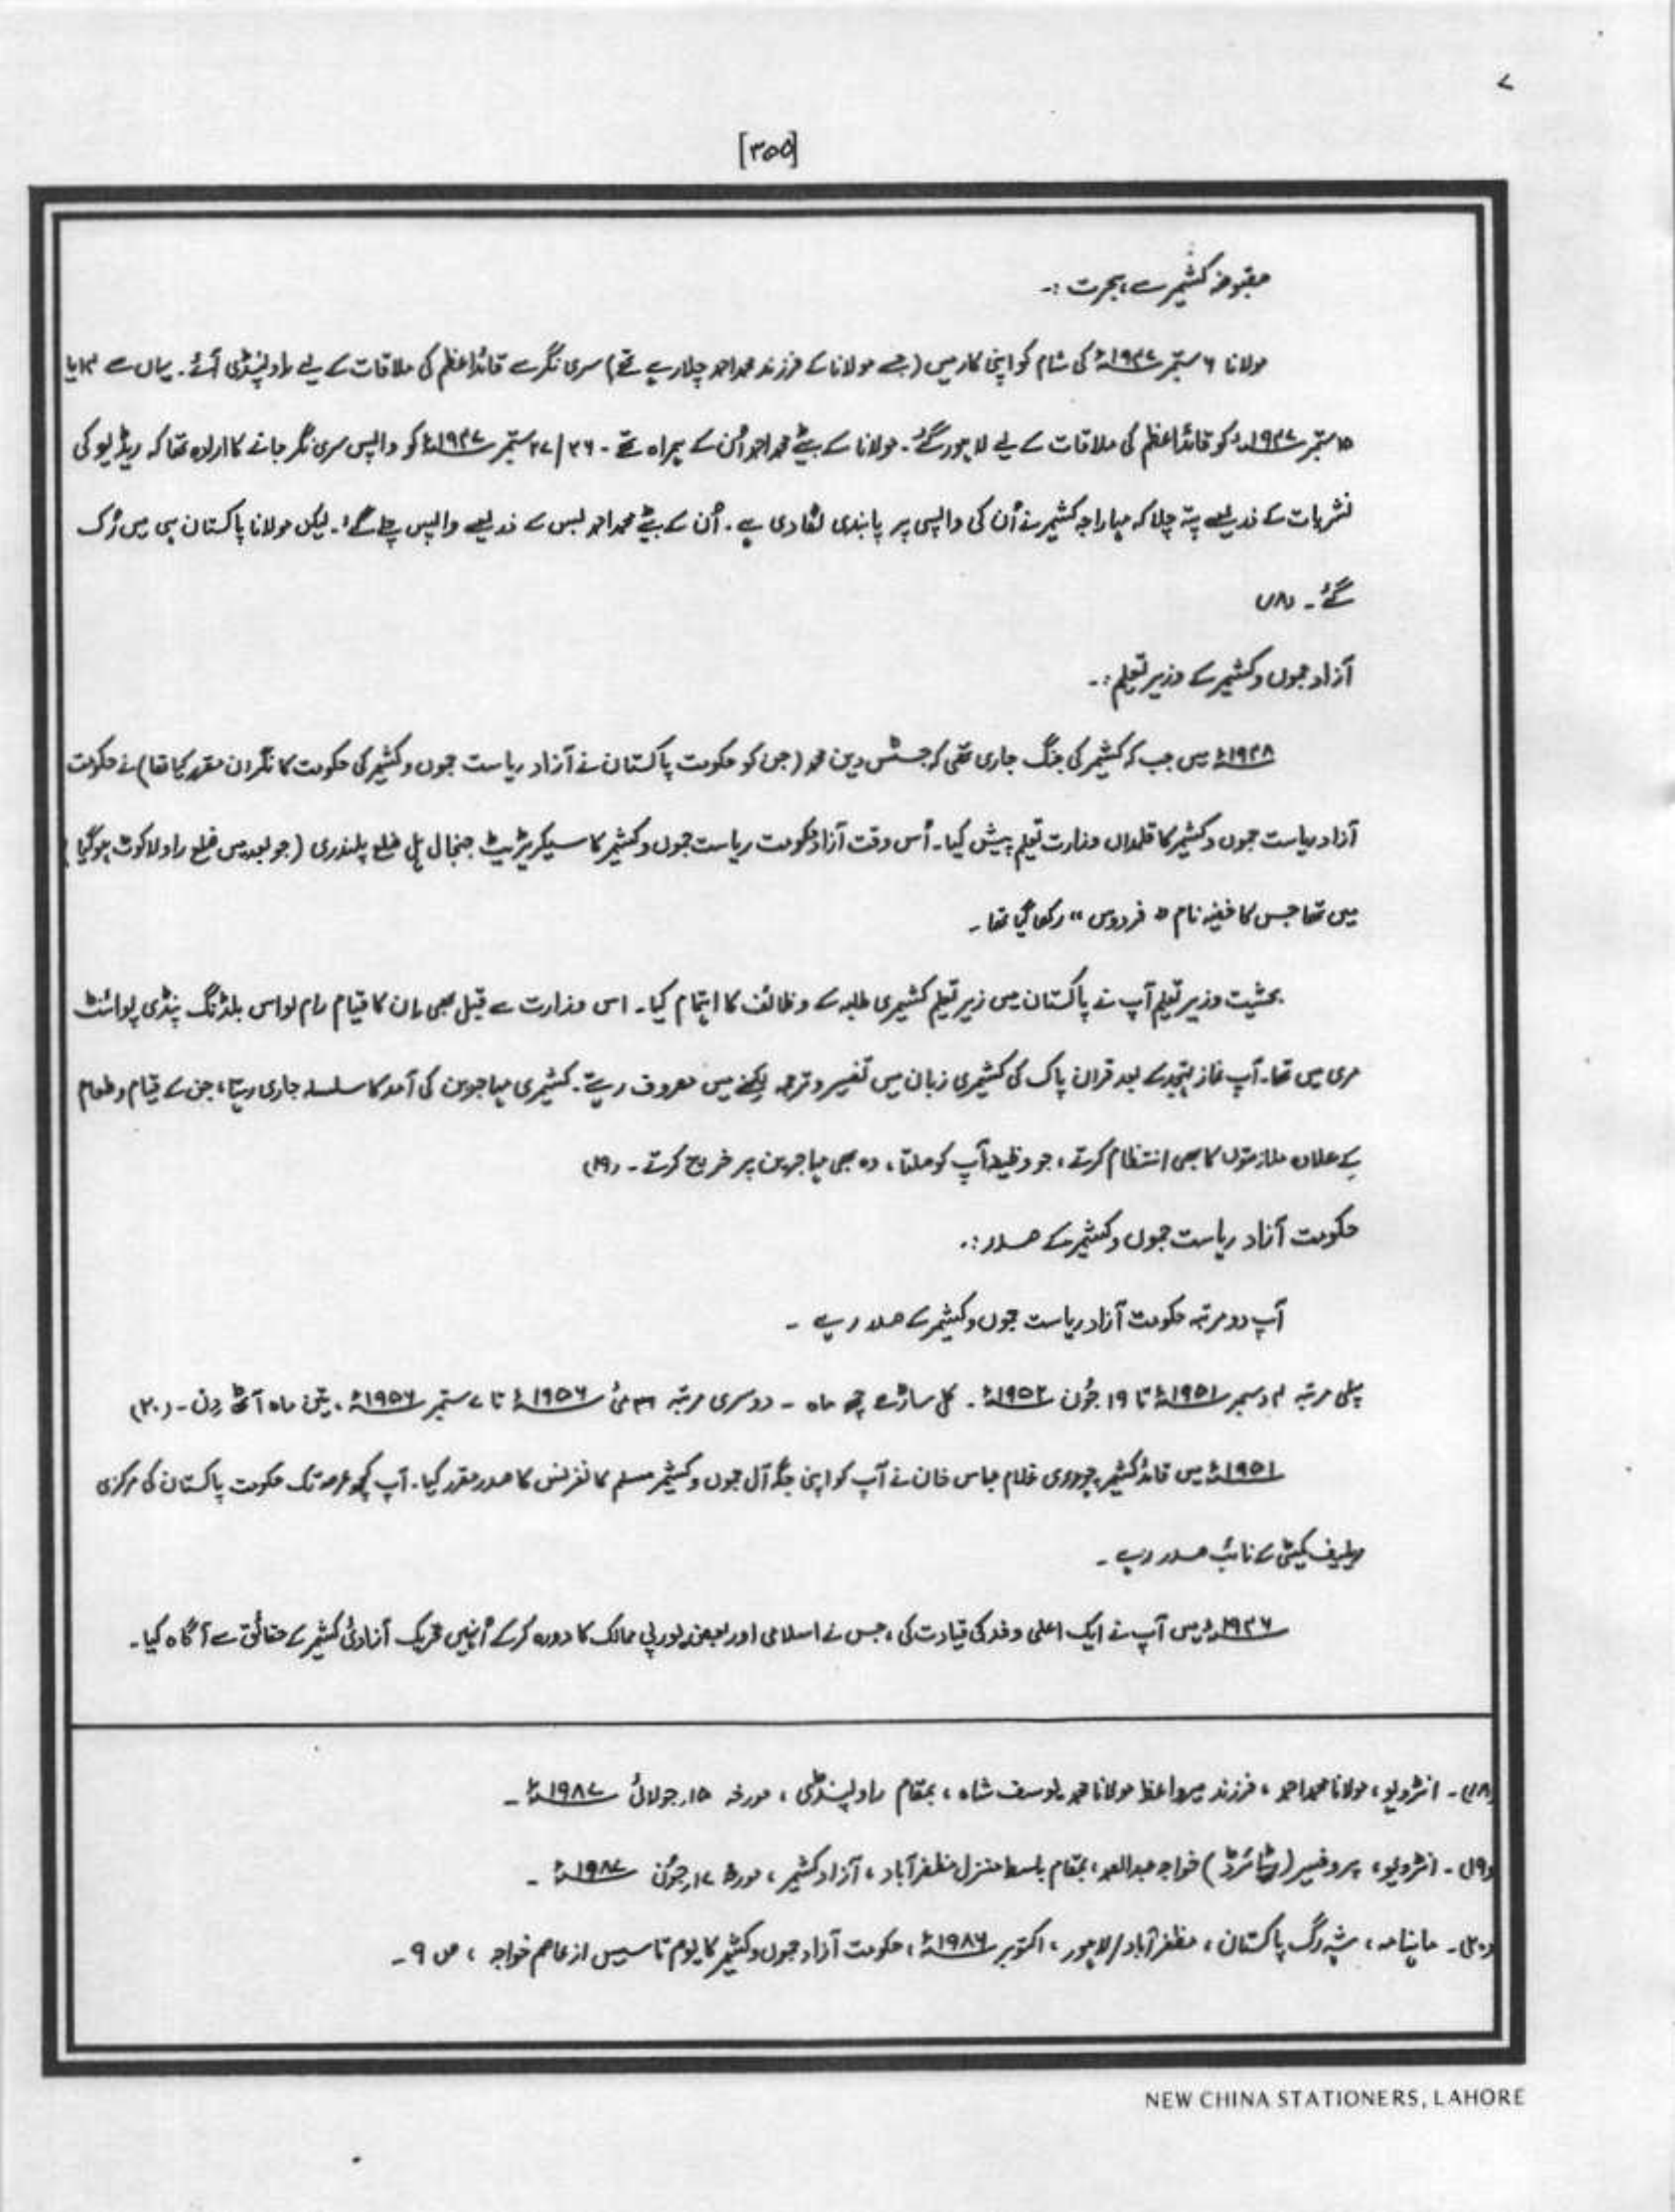 [۳۵۵]
مقبوضہ کشمیر سے ہجرت :۔
مولانا ۶ ستمبر ۱۹۴۷ء کی شام کو اپنی کار میں (جسے مولانا کے فرزند محمد احمد چلا رہے تھے) سری نگر سے قائداعظم کی ملاقات کے لیے راولپنڈی آئے۔ یہاں سے ۱۴ یا
۱۵ ستمبر ۱۹۴۷ء کو قائداعظم کی ملاقات کے لیے لاہور گئے۔ مولانا کے بیٹے محمد احمد اُن کے ہمراہ تھے۔ ۲۶/۲۷ ستمبر ۱۹۴۷ء کو واپس سری نگر جانے کا ارادہ تھا کہ ریڈیو کی
نشریات کے ذریعے پتہ چلا کہ مہاراجہ کشمیر نے اُن کی واپسی پر پابندی لگا دی ہے۔ اُن کے بیٹے محمد احمد بس کے ذریعے واپس چلے گئے۔ لیکن مولانا پاکستان ہی میں رُک
گئے۔ (۱۸)
آزاد جموں و کشمیر کے وزیر تعلیم :۔
۱۹۴۸ء میں جب کہ کشمیر کی جنگ جاری تھی کہ جسٹس دین محمد (جن کو حکومت پاکستان نے آزاد ریاست جموں و کشمیر کی حکومت کا نگران مقرر کیا تھا) نے حکومت
آزاد ریاست جموں و کشمیر کا قلمدان وزارت تعلیم پیش کیا۔ اُس وقت آزاد حکومت ریاست جموں و کشمیر کا سیکریٹریٹ جنجال ہل ضلع پلندری (جو بعد میں ضلع راولاکوٹ ہوگیا)
میں تھا جس کا خفیہ نام "فردوس" رکھا گیا تھا۔
بحثیت وزیر تعلیم آپ نے پاکستان میں زیر تعلیم کشمیری طلبہ کے وظائف کا اہتمام کیا۔ اس وزارت سے قبل بھی اِن کا قیام رام نواس بلڈنگ پنڈی پوائنٹ
مری میں تھا۔ آپ نماز تہجد کے بعد قران پاک کی کشمیری زبان میں تفسیر و ترجمہ لکھنے میں مصروف رہتے۔ کشمیری مہاجرین کی آمد کا سلسلہ جاری رہتا، جن کے قیام و طعام
کے علاوہ ملازمتوں کا بھی انتظام کرتے، جو وظیفہ آپ کو ملتا، وہ بھی مہاجرین پر خرچ کرتے۔ (۱۹)
حکومت آزاد ریاست جموں و کشمیر کے صدر :۔
آپ دو مرتبہ حکومت آزاد ریاست جموں و کشمیر کے صدر رہے۔
پہلی مرتبہ ۴ دسمبر ۱۹۵۱ء تا ۱۹ جُون ۱۹۵۲ء۔ کل ساڑھے چھ ماہ۔ دوسری مرتبہ ۳۱ مئی ۱۹۵۶ء تا ۷ ستمبر ۱۹۵۶ء، تین ماہ آٹھ دِن۔ (۲۰)
۱۹۵۱ء میں قائد کشمیر چودہری غلام عباس خان نے آپ کو اپنی جگہ آل جموں و کشمیر مسلم کانفرنس کا صدر مقرر کیا۔ آپ کچھ عرصہ تک حکومت پاکستان کی مرکزی
ریلیف کمیٹی کے نائب صدر رہے۔
۱۹۴۶ء میں آپ نے ایک اعلی وفد کی قیادت کی، جس نے اسلامی اور بعض یورپی ممالک کا دورہ کرکے اُنہیں تحریک آزادئ کشمیر کے حقائق سے آگاہ کیا۔
(۱۸)۔ انٹرویو، مولانا محمد احمد، فرزند میرواعظ مولانا محمد یوسف شاہ، بمقام راولپنڈی، مورخہ ۱۵، جولائی ۱۹۸۷ء۔
(۱۹)۔ انٹرویو، پروفیسر (ریٹائرڈ) خواجہ عبدالصمد، بمقام باسط منزل مظفر آباد، آزاد کشمیر، مورخہ ۱۷، جُون ۱۹۸۷ء۔
(۲۰)۔ ماہنامہ، شہ رگ پاکستان، مظفر آباد/لاہور، اکتوبر ۱۹۸۶ء، حکومت آزاد جموں و کشمیر کا یوم تاسیس از عاصم خواجہ، ص ۹۔
NEW CHINA STATIONERS, LAHORE